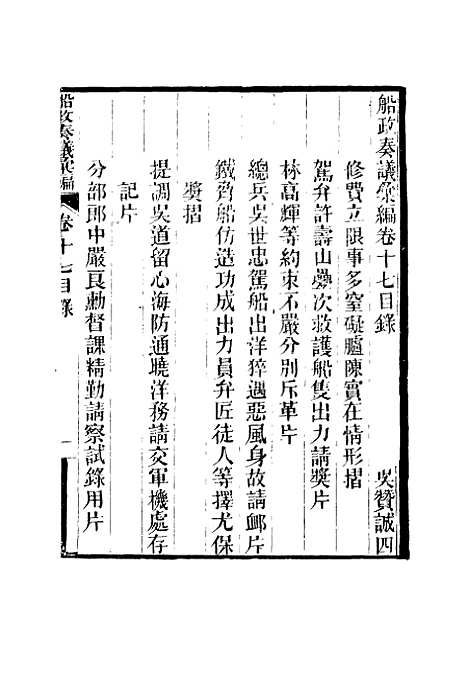 船政奏議彙編卷十七目錄　吳贊誠四
修費立限事多窒礙臚陳實在情形摺
駕弁許壽山疊次救護船隻出力請獎片
林高輝等約束不嚴分別斥革片
總兵吳世忠駕船出洋猝遇惡風身故請卹片
鐵脅船仿造功成出力員弁匠徒人等擇尤保
獎摺
提調吳道留心海防通曉洋務請交軍機處存
記片
分部郎中嚴良勳督課精勤請察試錄用片
船政奏議彙編　卷十七目錄　一